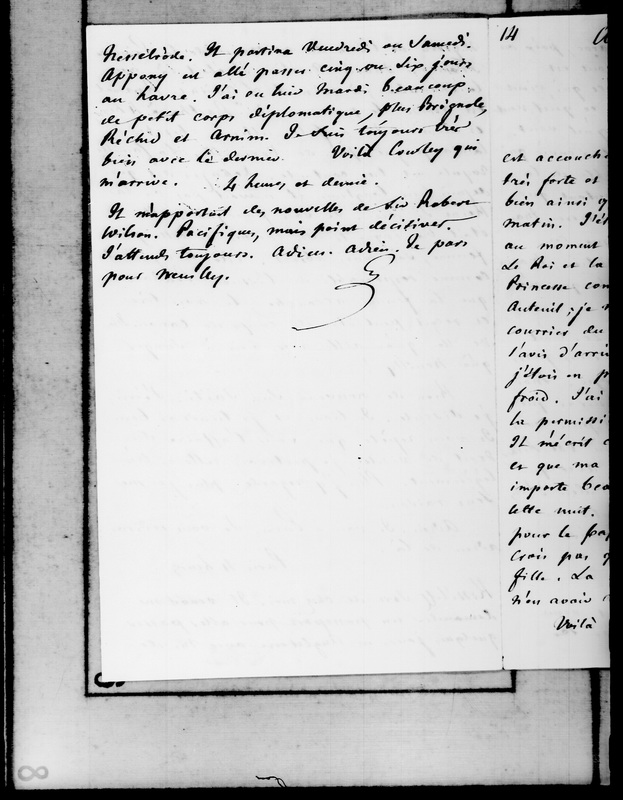 Nesselrode. Il partira Vendredi ou Samedi.
Appony est allé passer cinq ou six jours
au havre. J'ai eu hier Mardi beaucoup
de petit corps diplomatique, plus Brignole,
et Arnim. Je suis toujours très
bien avec le dernier. Voilà Cowley qui
m'arrive. 4 heures et demie.
Il m'apportait des nouvelles de Sir Robert
Wilson. Pacifiques, mais point décisives.
J'attends toujours. Adieu. Adieu. Je pars
pour Neuilly.
14
est accouch
très forte et
bien ainsi q
matin. J'ét
au moment
Le Roi et la
Princesse con
Auteuil ; je
courrier du
l'avis d'arri
j'étois en p
froid. J'ai
la permissi
Il m'écrit
et que ma
importe bea
cette nuit.
pour le
Crois pas
fille. La
n'en avoir
Voilà
8